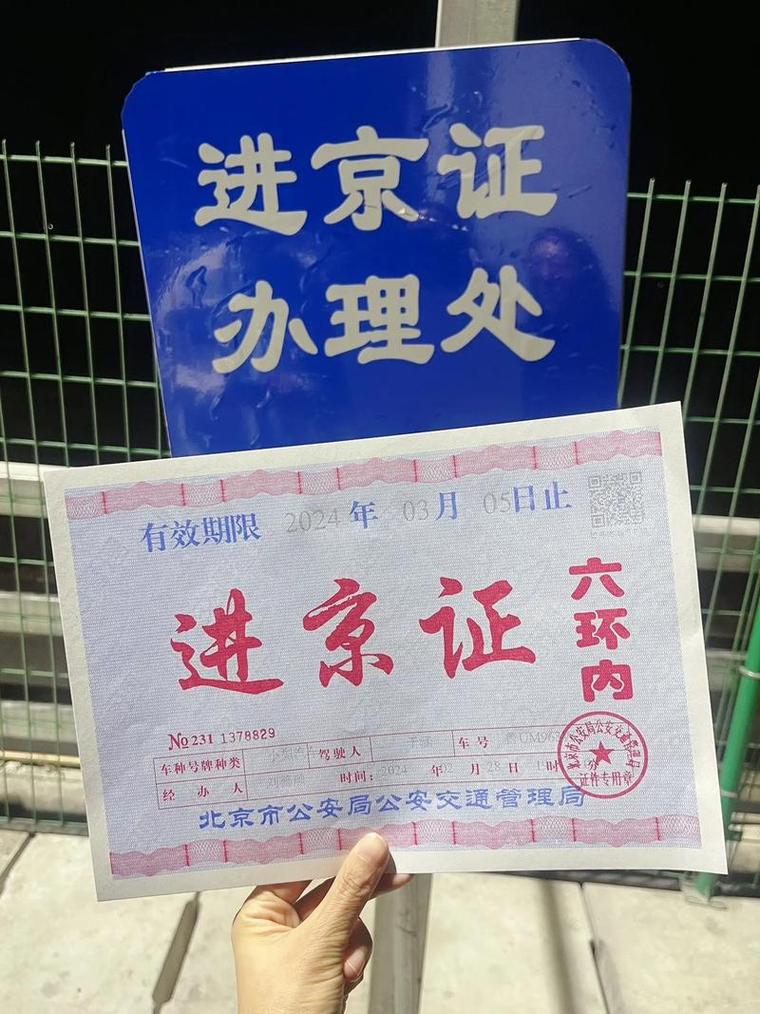 进京证
办理处
有效期限 2024 年 03 月 05 日止
进京证
六环内
No 231 1378829
车种号牌种类 驾驶人 车号
经办人 时间: 2024 年 02 月 28 日
北京市公安局公安交通管理局
北京市公安局公安交通管理局
证件专用章